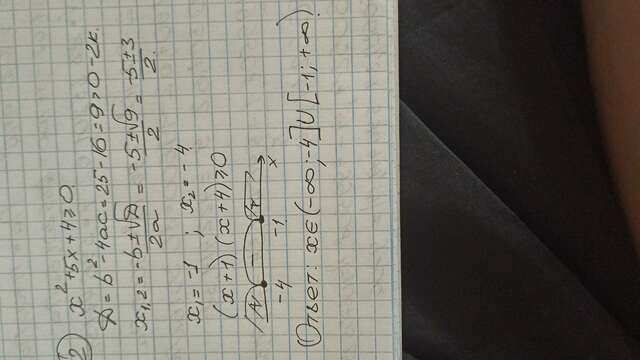 2) x² + 5x + 4 ≥ 0
D = b² - 4ac = 25 - 16 = 9 > 0 - 2к.
x₁,₂ = -b ± √D / 2a = -5 ± √9 / 2 = -5 ± 3 / 2.
x₁ = -1 ; x₂ = -4
(x+1)(x+4) ≥ 0
+ - + x
-4 -1
Ответ: x ∈ (-∞; -4] ∪ [-1; +∞)